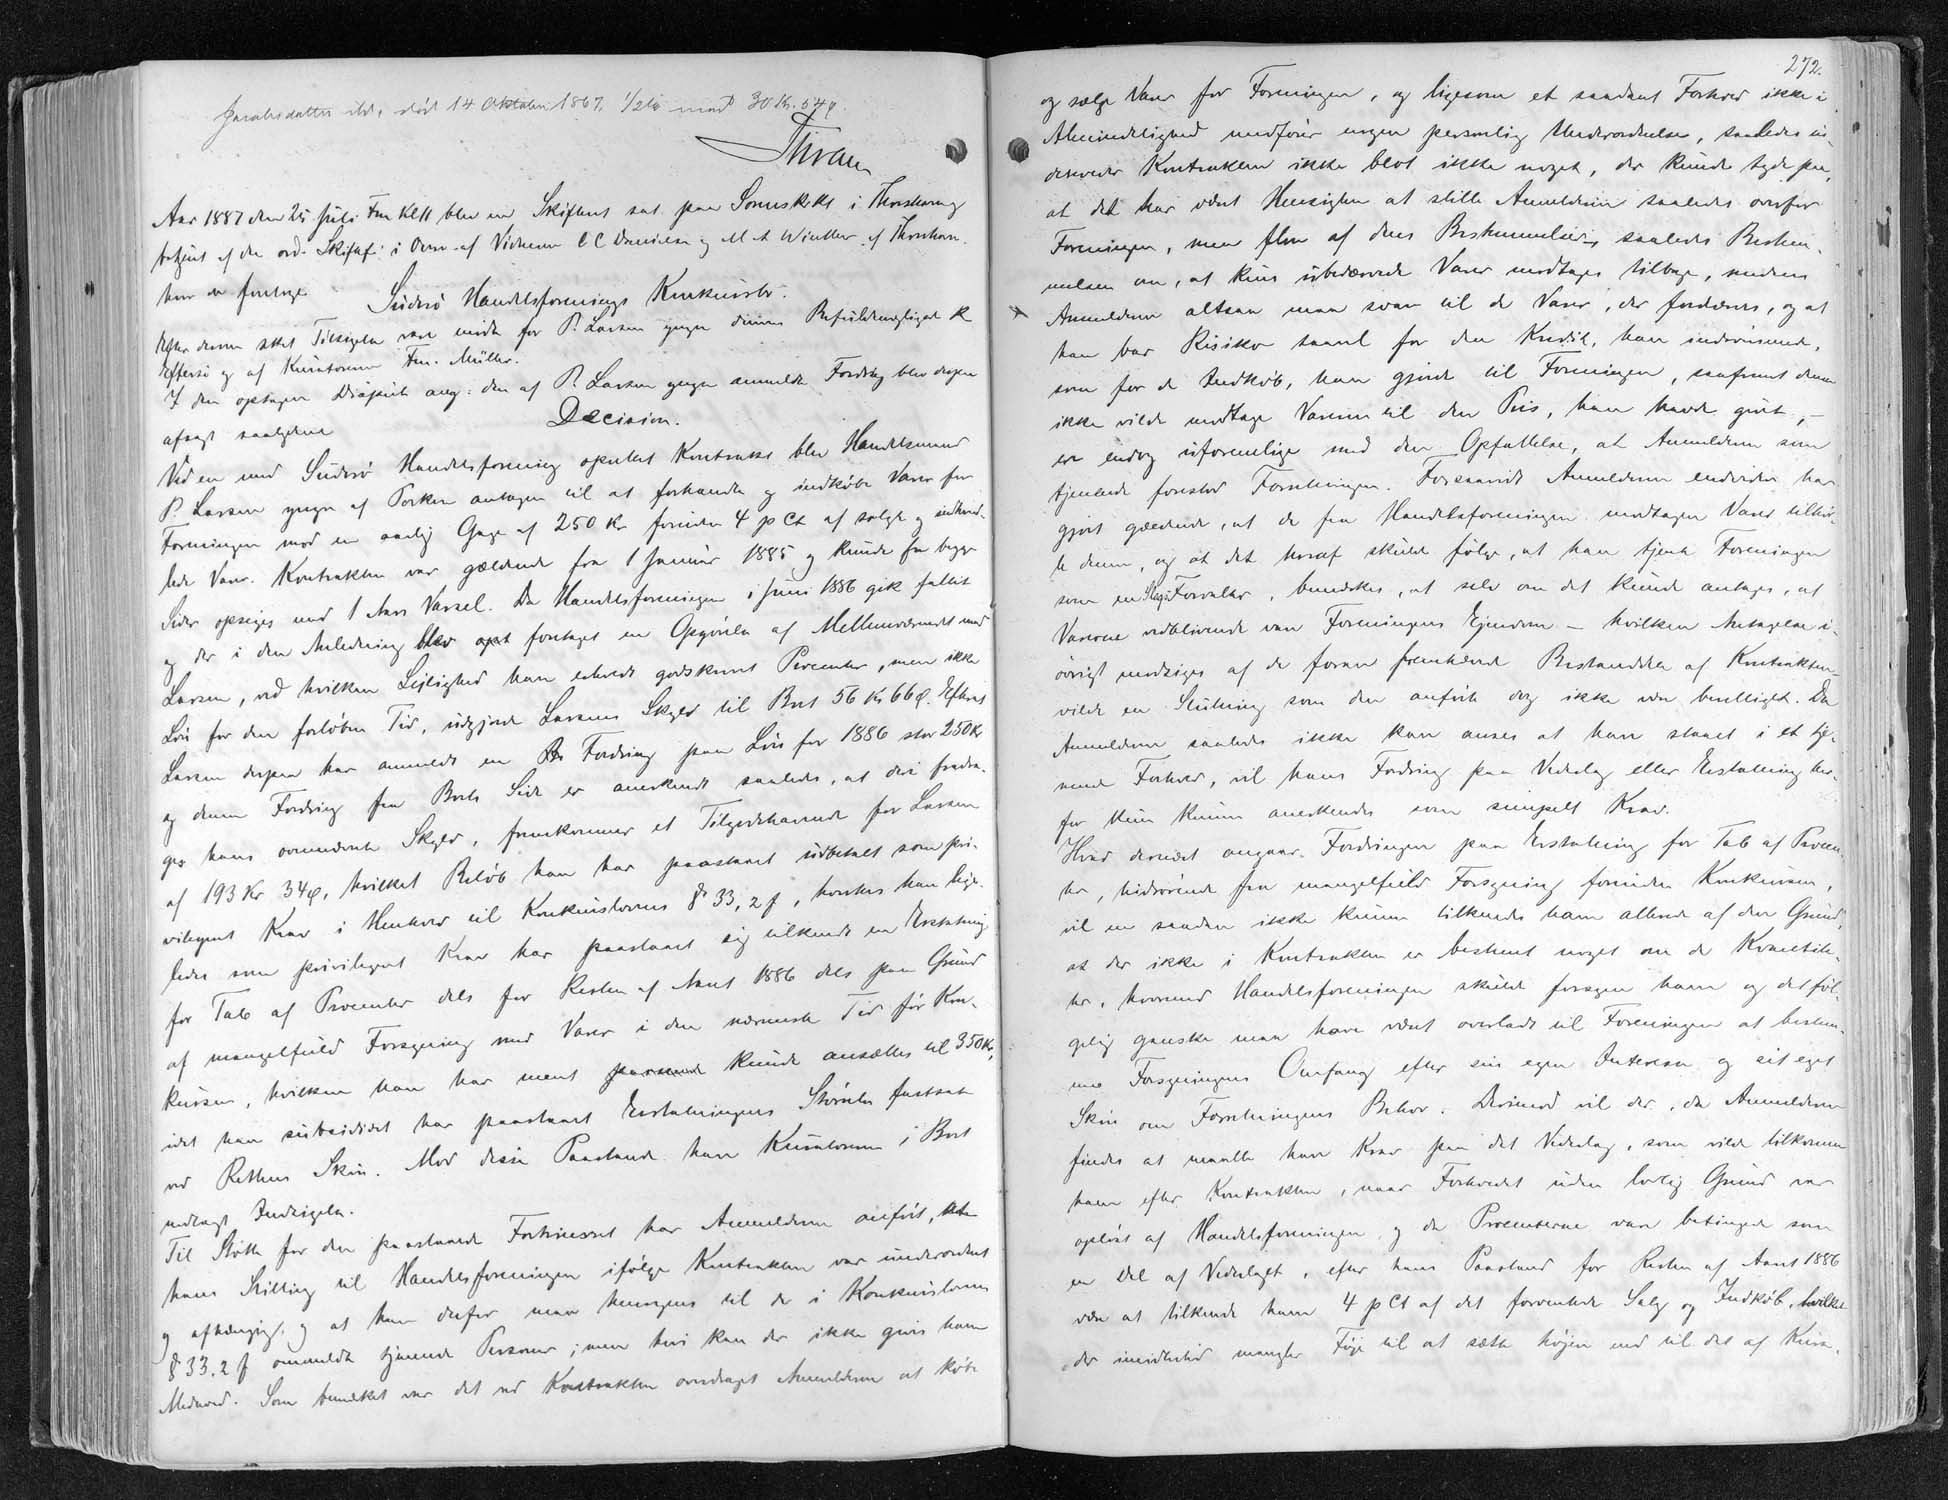 Jacobsdatter ibd., død 14 Oktober 1867. 1/2 med 30 Kr. 54 ø.
Aar 1887 den 25 Juli Fm Kl 11 blev en Skifteret sat paa Sorenskrkt i Thorshavn
betjent af den ord. Skiftef: i Overv. af Vidnerne C C Danielsen og M A Winther af Thorshavn
hvor da foretoges
Suderø Handelsforenings Konkursbo.
Efter dertil sket Tilsigelse var mødt for P. Larsen yngre dennes Befuldmægtigede K
Effersø og af Kuratorerne Fm. Müller.
I den optagne Disput ang: den af P. Larsen yngre anmeldte Fordring blev derpaa
afsagt saalydende
Decision.
Ved en med Suderø Handelsforening oprettet Kontrakt blev Handelsmand
P. Larsen yngre af Porkere antagen til at forhandle og indkøbe Varer for
Foreningen mod en aarlig Gage af 250 Kr foruden 4 p Ct af solgte og indhand-
lede Varer. Kontrakten var gældende fra 1 Januar 1885 og kunde fra begge
Sider opsiges med 1 Aars Varsel. Da Handelsforeningen i Juni 1886 gik fallit
og der i den Anledning blev foretaget en Opgørelse af Mellemværendet med
Larsen, ved hvilken Lejlighed han erholdt godskrevet Procenter, men ikke
Løn for den forløbne Tid, udgjorde Larsens Skyld til Boet 56 Kr 66 ø. Efterat
Larsen derpaa har anmeldt en Fordring paa Løn for 1886 stor 250 Kr
og denne Fordring fra Boets Side er anerkendt saaledes, at deri fradra-
ges hans ovennævnte Skyld, fremkommer et Tilgodehavende for Larsen
af 193 Kr 34 ø, hvilket Beløb han har paastaaet udbetalt som pri-
vilegeret Krav i Henhold til Konkurslovens § 33, 2 f, hvorhos han lige-
ledes som privilegeret Krav har paastaaet sig tilkendt en Erstatning
for Tab af Procenter dels for Resten af Aaret 1886 dels paa Grund
af mangelfuld Forsyning med Varer i den nærmeste Tid før Kon-
kursen, hvilken han har ment kunde ansættes til 350 Kr,
idet han subsidiært har paastaaet Erstatningens Størrelse fastsat
ved Rettens Skøn. Mod disse Paastande have Kuratorerne i Boet
nedlagt Indsigelse.
Til Støtte for den paastaaede Fortrinsret har Anmelderen anført, at
hans Stilling til Handelsforeningen ifølge Kontrakten var underordnet
og afhængig, og at han derfor maa henregnes til de i Konkurslovens
§ 33, 2 f ommeldte tjenende Personer; men heri kan der ikke gives ham
Medhold. Som bemærket var det ved Kontrakten overdraget Anmelderen at købe
272.
og sælge Varer for Foreningen, og ligesom et saadant Forhold ikke i
Almindelighed medfører nogen personlig Underordnelse, saaledes in-
deholder Kontrakten ikke blot ikke noget, der kunde tyde paa,
at det har været Hensigten at stille Anmelderen saaledes overfor
Foreningen, men flere af dens Bestemmelser, saaledes Bestem-
melsen om, at kun ubedærvede Varer modtages tilbage, medens
Anmelderen altsaa maa svare til de Varer, der fordærves, og at
han bar Risiko saavel for den Kredit, han indrømmede,
som for de Indkøb, han gjorde til Foreningen, saafremt denne
ikke vilde modtage Varerne til den Pris, han havde givet, -
ere endog uforenelige med den Opfattelse, at Anmelderen som
tjenende forestod Forretningen. Forsaavidt Anmelderen endvidere har
gjort gældende, at de fra Handelsforeningen modtagne Varer tilhør-
te denne, og at det heraf skulde følge, at han tjente Foreningen
som en Slags Forvalter, bemærkes, at selv om det kunde antages, at
Varerne vedblivende vare Foreningens Ejendom - hvilken Antagelse i-
øvrigt modsiges af de foran fremhævede Bestanddele af Kontrakten -
vilde en Slutning som den anførte dog ikke være berettiget. Da
Anmelderen saaledes ikke kan anses at have staaet i et tje-
nende Forhold, vil hans Fordring paa Vederlag eller Erstatning her-
for kun kunne anerkendes som simpelt Krav.
Hvad dernæst angaar Fordringen paa Erstatning for Tab af Procen-
ter, hidrørende fra mangelfuld Forsyning forinden Konkursen,
vil en saadan ikke kunne tilkendes ham allerede af den Grund,
at der ikke i Kontrakten er bestemt noget om de Kvantite-
ter, hvormed Handelsforeningen skulde forsyne ham og det føl-
gelig ganske maa have været overladt til Foreningen at bestem-
me Forsyningens Omfang efter sin egen Interesse og sit eget
Skøn om Forretningens Behov. Derimod vil der, da Anmelderen
findes at maatte have Krav paa det Vederlag, som vilde tilkomme
ham efter Kontrakten, naar Forholdet uden lovlig Grund var
opløst af Handelsforeningen, og da Procenterne vare betingede som
en Del af Vederlaget, efter hans Paastand for Resten af Aaret 1886
være at tilkende ham 4 p Ct af det forventede Salg og Indkøb, hvilket
der imidlertid mangler Føje til at sætte højere end til det af Kura-